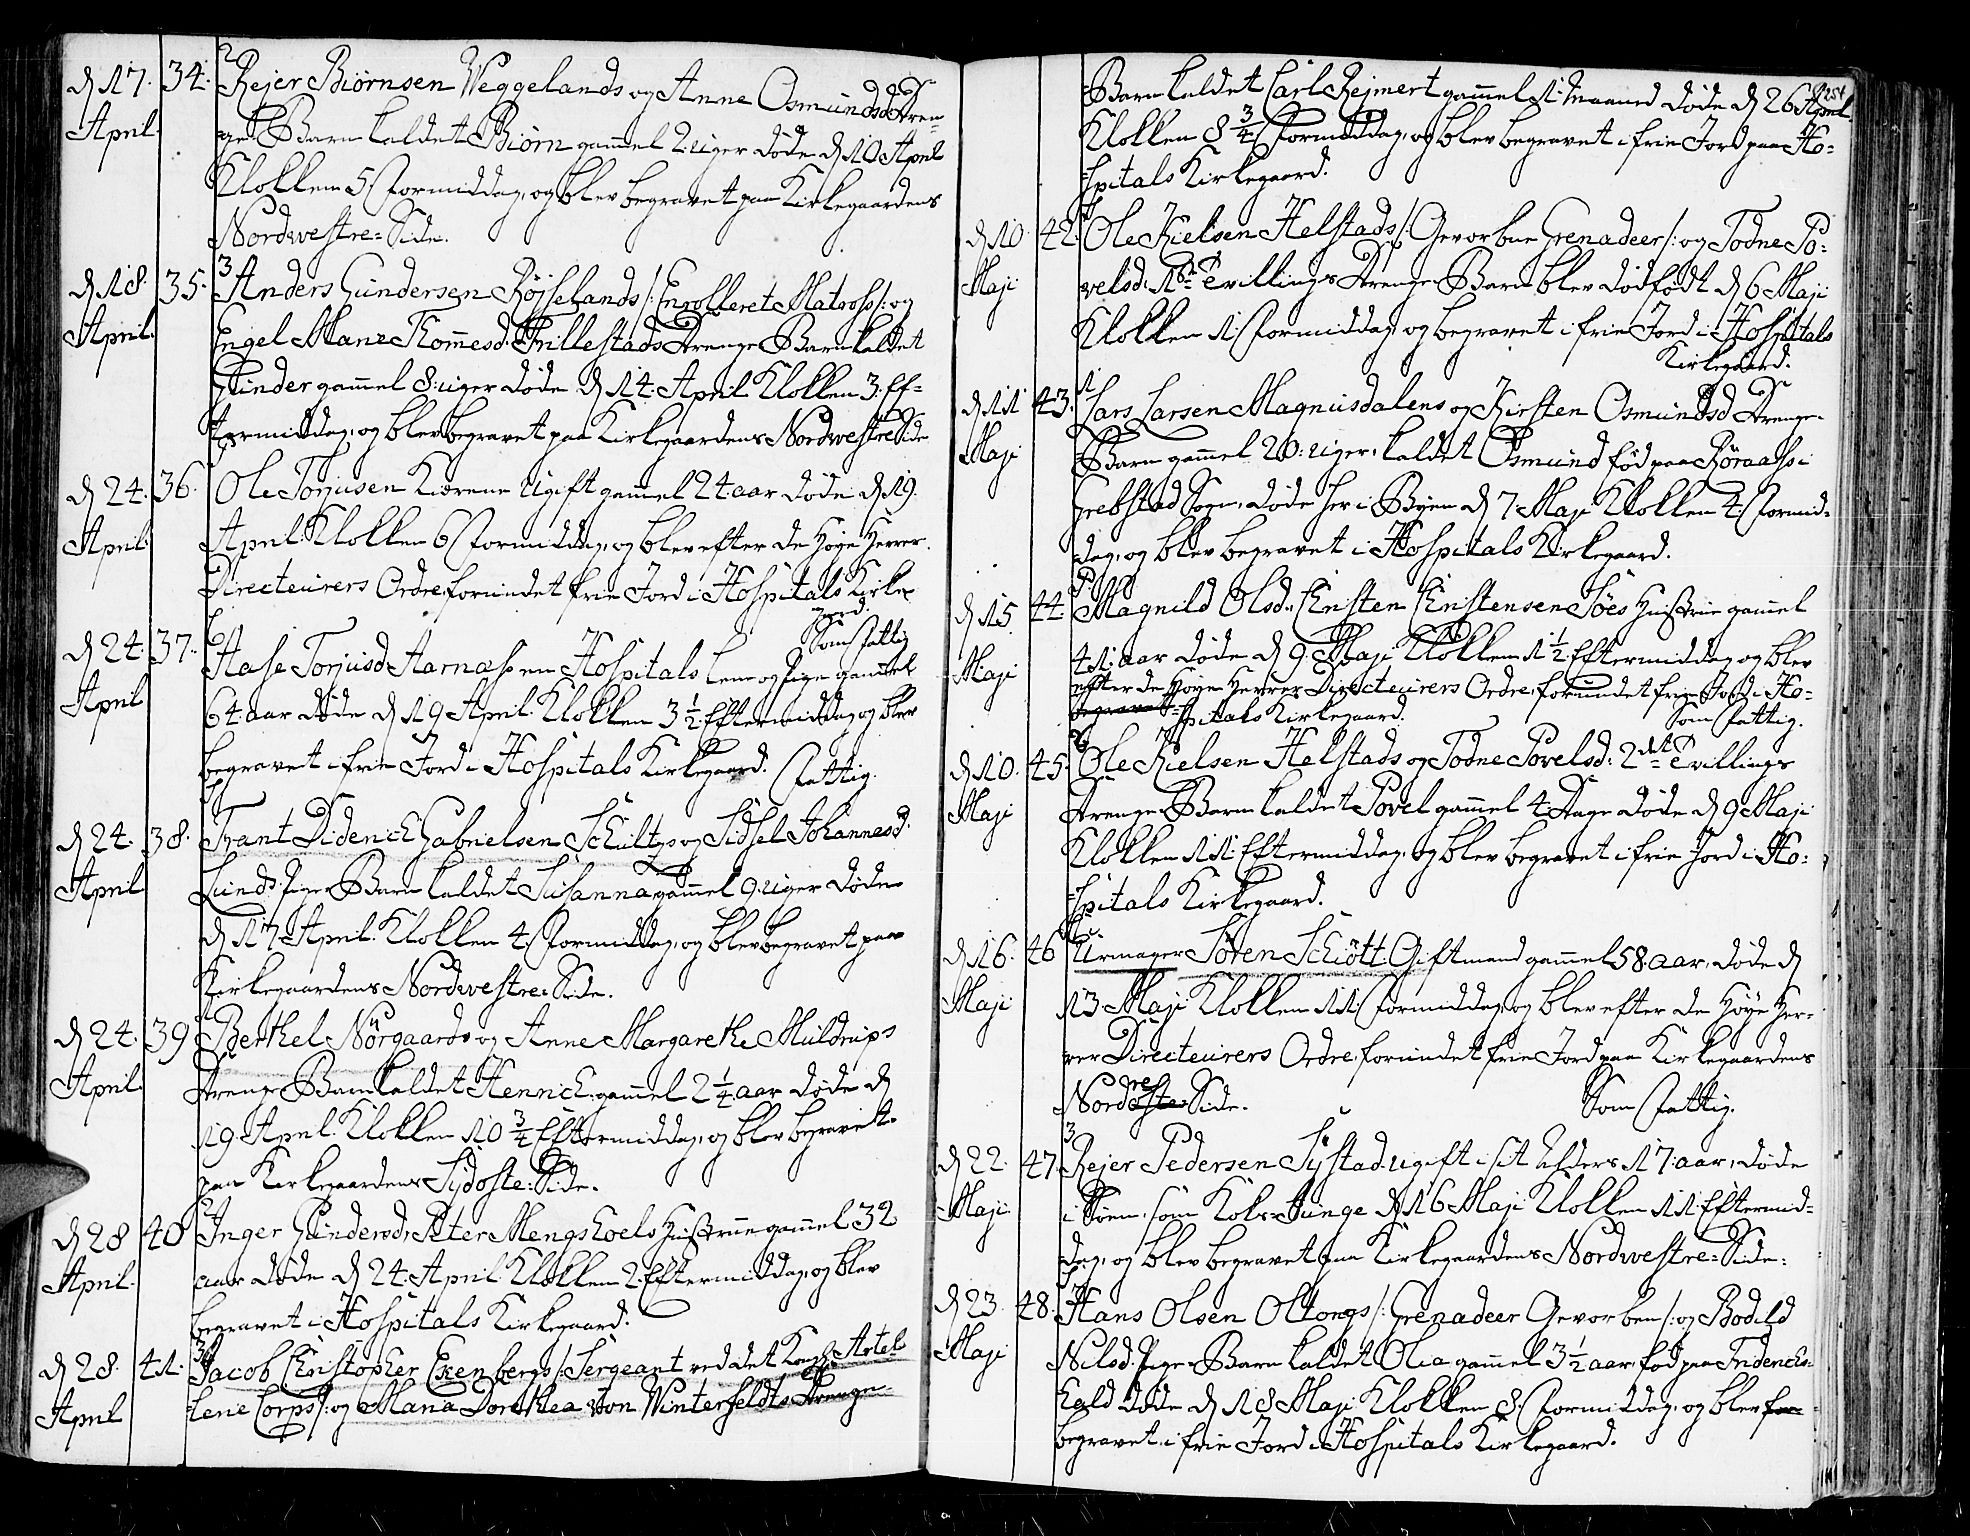 d 17. 34. Rejer Biörnsen Weggelands og Anne Osmundsd Dren-
April. ge Barn kaldet Biörn gammel 2 uger døde d 10 April
Klokken 5 Formiddag, og blev begravet paa Kirkegaardens
Nordwestre-Side.
d 18. 35. Anders Gundersen Röjselands /: Enrolleret Matroos :/ og
April. Engel Marie Thommesd. Trillestads Drenge Barn kaldet
Gunder gammel 8. uger døde d 14. April Klokken 3. Ef-
termiddag, og blev begravet paa Kirkegaardens Nordwestre Side
d 24. 36. Ole Torjusen Kiærene Ugift gammel 24 aar døde d 19.
April. April. Klokken 6 Formiddag, og blev efter de Høye Herrer
Directeurers Ordre forundet frie Jord i Hospitals Kirke-
gaard.
Som fattig
d 24. 37. Aase Torjusd. Aarnæs en Hospitals Lem og Pige gammel
April 64. aar døde d 19 April. Klokken 3 1/2 Eftermiddag og blev
begravet i frie Jord i Hospitals Kirkegaard. Fattig.
d 24. 38. Trant Diderich Gabrielsen Schultzs og Sidsel Johannesd.
April Lunds Pige Barn kaldet Susanna gammel 9. uger døde
d 17 April. Klokken 4. Formiddag, og blev begravet paa
Kirkegaardens Nordwestre Side.
d 24. 39 Berthel Nörgaards og Anne Margarethe Muldrups
April. Drenge Barn kaldet Henrich gammel 2 1/4 aar døde d
19. April. Klokken 10 3/4 Eftermiddag, og blev begravet
paa Kirkegaardens Sydoste-Side.
d 28 40 Inger Gundersd. Peter Mengshoels Hustrue gammel 32
April. aar døde d 24. April. Klokken 2. Eftermiddag, og blev
begravet i Hospitals Kirkegaard.
d 28. 41. Jacob Christopher Exenbergs /: Sergeant ved det Kongl. Artel
April lerie Corps :/ og Maria Dorothea von Winterfeldts Drenge
254
Barn kaldet Carl Rejmert gammel 1 Maaned døde d 26 April.
Klokken 8 3/4 Formiddag, og blev begravet i frie Jord paa Ho-
spitals Kirkegaard.
d 10. 42. Ole Kielsen Helstads /: Gevorben Grenadeer :/ og Todne Po-
Maji velsd. 1ste Tvillings Drenge Barn blev dødfødt d 6 Maji
Klokken 1. Formiddag, og begravet i frie Jord i Hospitals
Kirkegaard.
d 11 43. Lars Larsen Magnusdalens og Kirsten Osmundsd Drenge-
Maji Barn gammel 20. uger, kaldet Osmund fød paa Röraas i
Grebstad Sogn, døde her i Byen d 7 Maji Klokken 4. Formid-
dag, og blev begravet i Hospitals Kirkegaard.
d 15 44. Magnild Olsd. Christen Christensen Söes Hustrue gammel
Maji 41. aar døde d 9. Maji. Klokken 1 1/2. Eftermiddag og blev
efter de Høye Herrer Directeurers Ordre forundet frie Jord i Ho-
begravet spitals Kirkegaard. Som Fattig.
d 10. 45. Ole Kielsen Helstads og Todne Povelsd: 2det Tvillings
Maji Drenge Barn kaldet Povel gammel 4. Dage døde d 9 Maji
Klokken 11. Eftermiddag, og blev begravet i frie Jord i Ho-
spitals Kirkegaard.
d 16. 46 Urmager Sören Schiött Giftmand gammel 58. aar, døde d
Maji 13 Maji Klokken 11. Formiddag, og blev efter de Høye Her-
rer Directeurers Ordre forundet frie Jord paa Kirkegaardens
Nordostre-Side. Som Fattig.
d 22. 47. Rejer Pedersen Systad. ugift i sit Alders 17. aar, døde
Maji i Søen, som Koks Junge d 16 Maji Klokken 11. Eftermid-
dag, og blev begravet paa Kirkegaardens Nordwestre-Side.
d 23. 48. Hans Olsen Oltorgs /: Grenadeer Gevorben :/ og Bodild
Maji Nilsd. Pige Barn kaldet Olia gammel 3 1/2 aar, fød paa Friderichs-
hald døde d 18 Maji Klokken 8. Formiddag, og blev for-
begravet i frie Jord i Hospitals Kirkegaard.